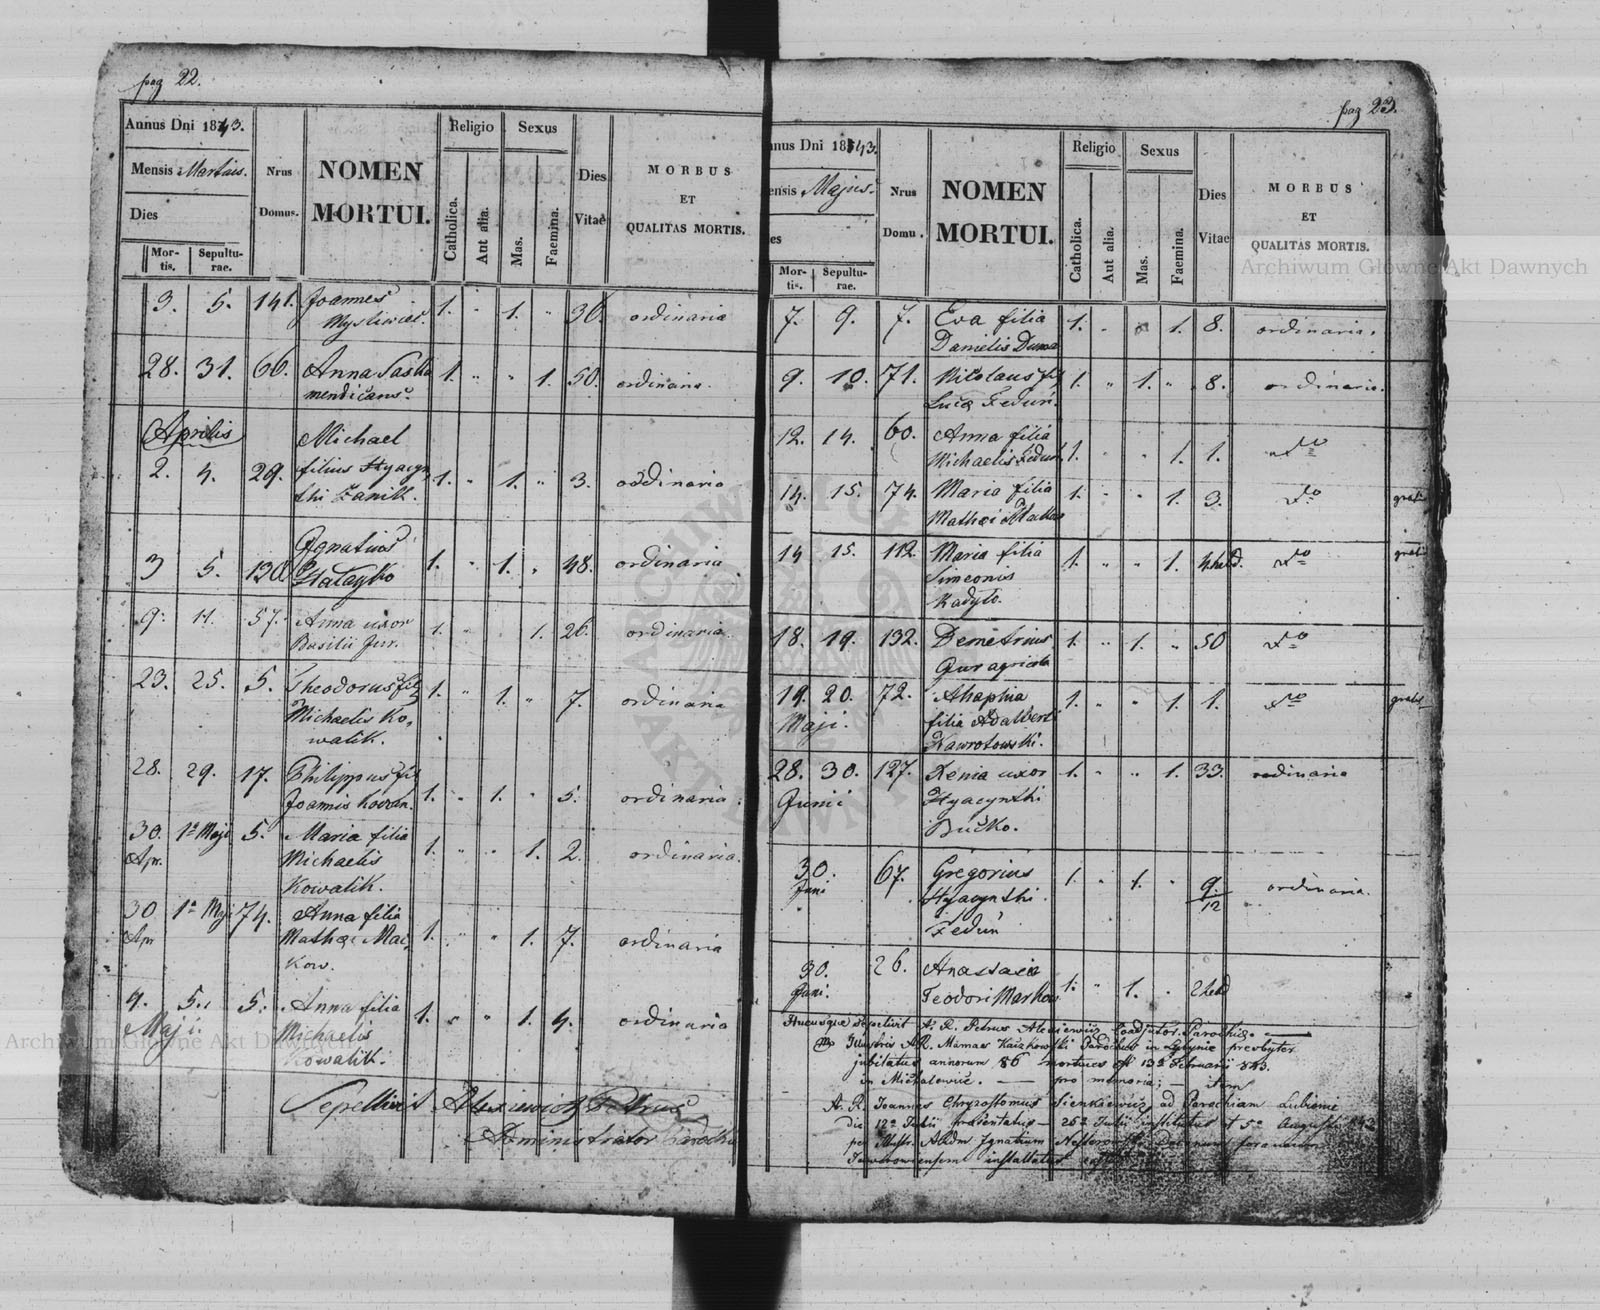 pag 22.
Annus Dni 1843.
Mensis Martius.
Dies
Mortis. Sepulturae.
Nrus Domus.
NOMEN MORTUI.
Religio
Catholica. Aut alia.
Sexus
Mas. Faemina.
Dies Vitae
MORBUS ET QUALITAS MORTIS.
3. 5. 141. Joannes 1. " 1. " 36. ordinaria
Mysliwiec.
28. 31. 66. Anna Sasha 1. " " 1. 50. ordinaria.
mendicans.
Aprilis
Michael
2. 4. 29. filius Hyacyn 1. " 1. " 3. ordinaria
thi Zanik.
Ignatius
3 5. 120. 1. " 1. " 48. ordinaria
9. 11. 57. Anna uxor 1. " 1. 26. ordinaria.
Basilii Jur.
23. 25. 5. Theodorus fil 1. " 1. " 7. ordinaria
Michaelis Ko,
walik.
28. 29. 17. Philippus fil
Joannis 1. " 1. " 5. ordinaria.
30. 1a Maji 5. Maria filia
Apr. Michaelis 1. " " 1. 2. ordinaria.
Kowalik.
30 1a Maji 74. Anna filia
Apr Mathei Mac 1. " " 1. 7. ordinaria
kow.
4. 5. 5. Anna filia 1. " " 1. 4. ordinaria
Maji. Michaelis
Kowalik.
Sepellivit Alexiewicz Petrus
Administrator
pag 23.
nnus Dni 1843.
ensis Majus.
es
Mortis. Sepulturae.
Nrus Domu.
NOMEN MORTUI.
Religio
Catholica. Aut alia.
Sexus
Mas. Faemina.
Dies Vitae
MORBUS ET QUALITAS MORTIS.
7. 9. 7. Eva filia 1. " 1. 8. ordinaria.
Danielis Duma
9. 10. 71. Nikolaus fil 1. " 1. " 8. ordinaria.
Luca Feduń.
12. 14. 60. Anna filia
Michaelis Feduń 1. " " 1. 1. do
14. 15. 74. Maria filia 1. " " 1. 3. do gratis
Mathei
14 15. 112. Maria filia 1. " " 1. 4. hebd. do gratis
Simeonis
Kadylo.
18. 19. 132. Demetrius 1. " 1. " 50 do
Gur agricola
19. 20. 72. Ahaphia 1. " " 1. 1. do gratis
Maji. filia Adalberti
Hawrotowski.
28. 30. 127. Xenia uxor 1. " " 1. 33. ordinaria
Junii Hyacynthi
Bućko.
30. 67. Gregorius 1. " 1. " 9/12 ordinaria.
Juni Hyacynthi
Feduń
30. 26. Anastasia
Juni. Teodori Markow 1. " 1. " 2 hebd
Hucusque Sepelivit A. R. Petrus Alexiewicz Coadjutor Parochiae
Illustris AR. Mamaes Kaczkowski Parochus in presbyter
jubilatus annorum 86 mortuus est 13a Februarii 843.
in Michalowice. — pro memoria; — item
A. R. Joannes Chrysostomus Sienkiewicz ad Parochiam Lubienie
die 12a Julii praesentatus — 25a Julii institutus et 5a Augusti
per Illustr. Ignatium Decanum foraneum
Jaworowiensem installatus est
Archiwum Główne Akt Dawnych
Archiwum Główne Akt Dawnych
ARCHIWUM GŁÓWNE AKT DAWNYCH